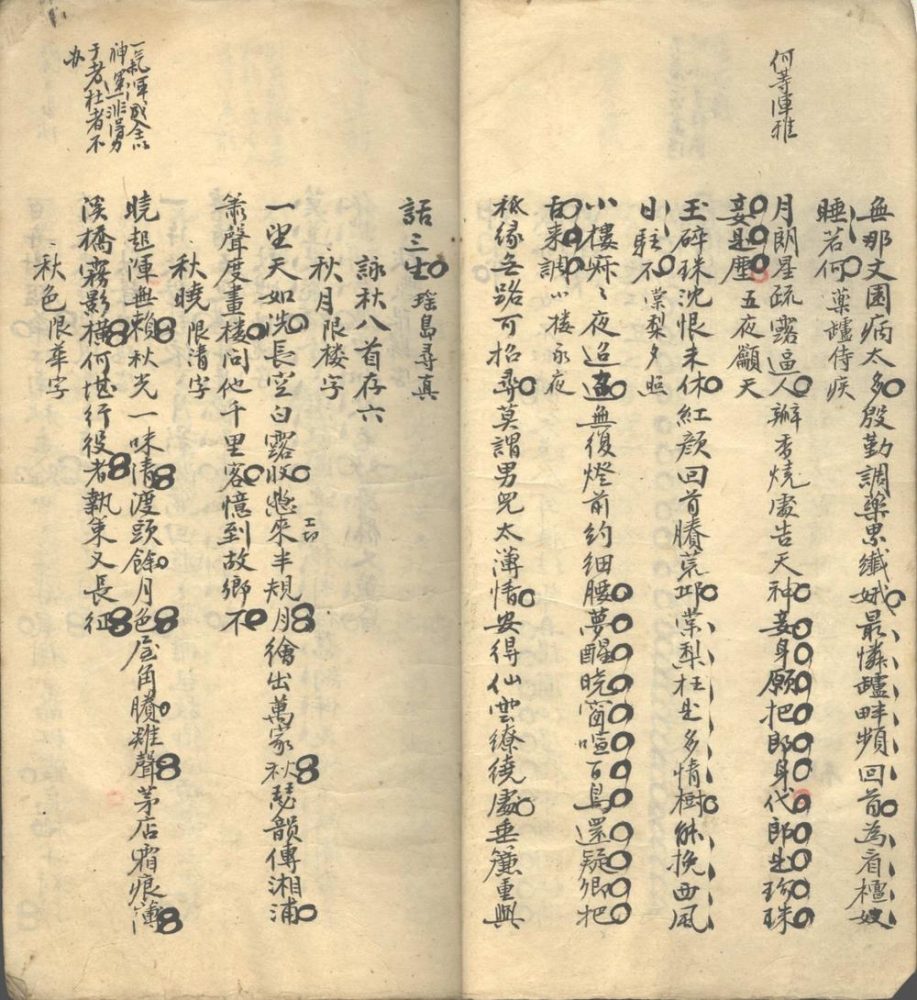 何等庄雅
無那文園病太多殷勤調藥累纖娥最憐爐畔頻回首為看檀奴
睡若何 藥爐侍疾
月朗星疏露逼人瓣香燒處告天神妾身願把郎身代郎是珍珠
妾是塵 五夜籲天
玉碎珠沈恨未休紅顏回首賸荒邱棠梨枉是多情樹能挽西風
日駐不 棠梨夕照
小樓寂〻夜迢遥無復燈前約細腰夢醒曉窗喧百鳥還疑卿把
舌来調 小樓永夜
秪緣無路可招尋莫謂男兒太薄情安得仙雲繚繞處垂簾重與
話三生 瑤島尋真
詠秋八首存六
秋月限樓字
一望天如洗長空白露收
來半規月繪出萬家秋瑟韻傳湘浦
簫聲度畫樓問他千里客憶到故鄉不
秋曉限清字
曉起渾無賴秋光一味清渡頭餘月色屋角賸雞聲茅店霜痕薄
溪橋霧影橫何堪行役者執束又長征
秋色限華字
一氣渾成全以
神運非得力
于老杜者不
办